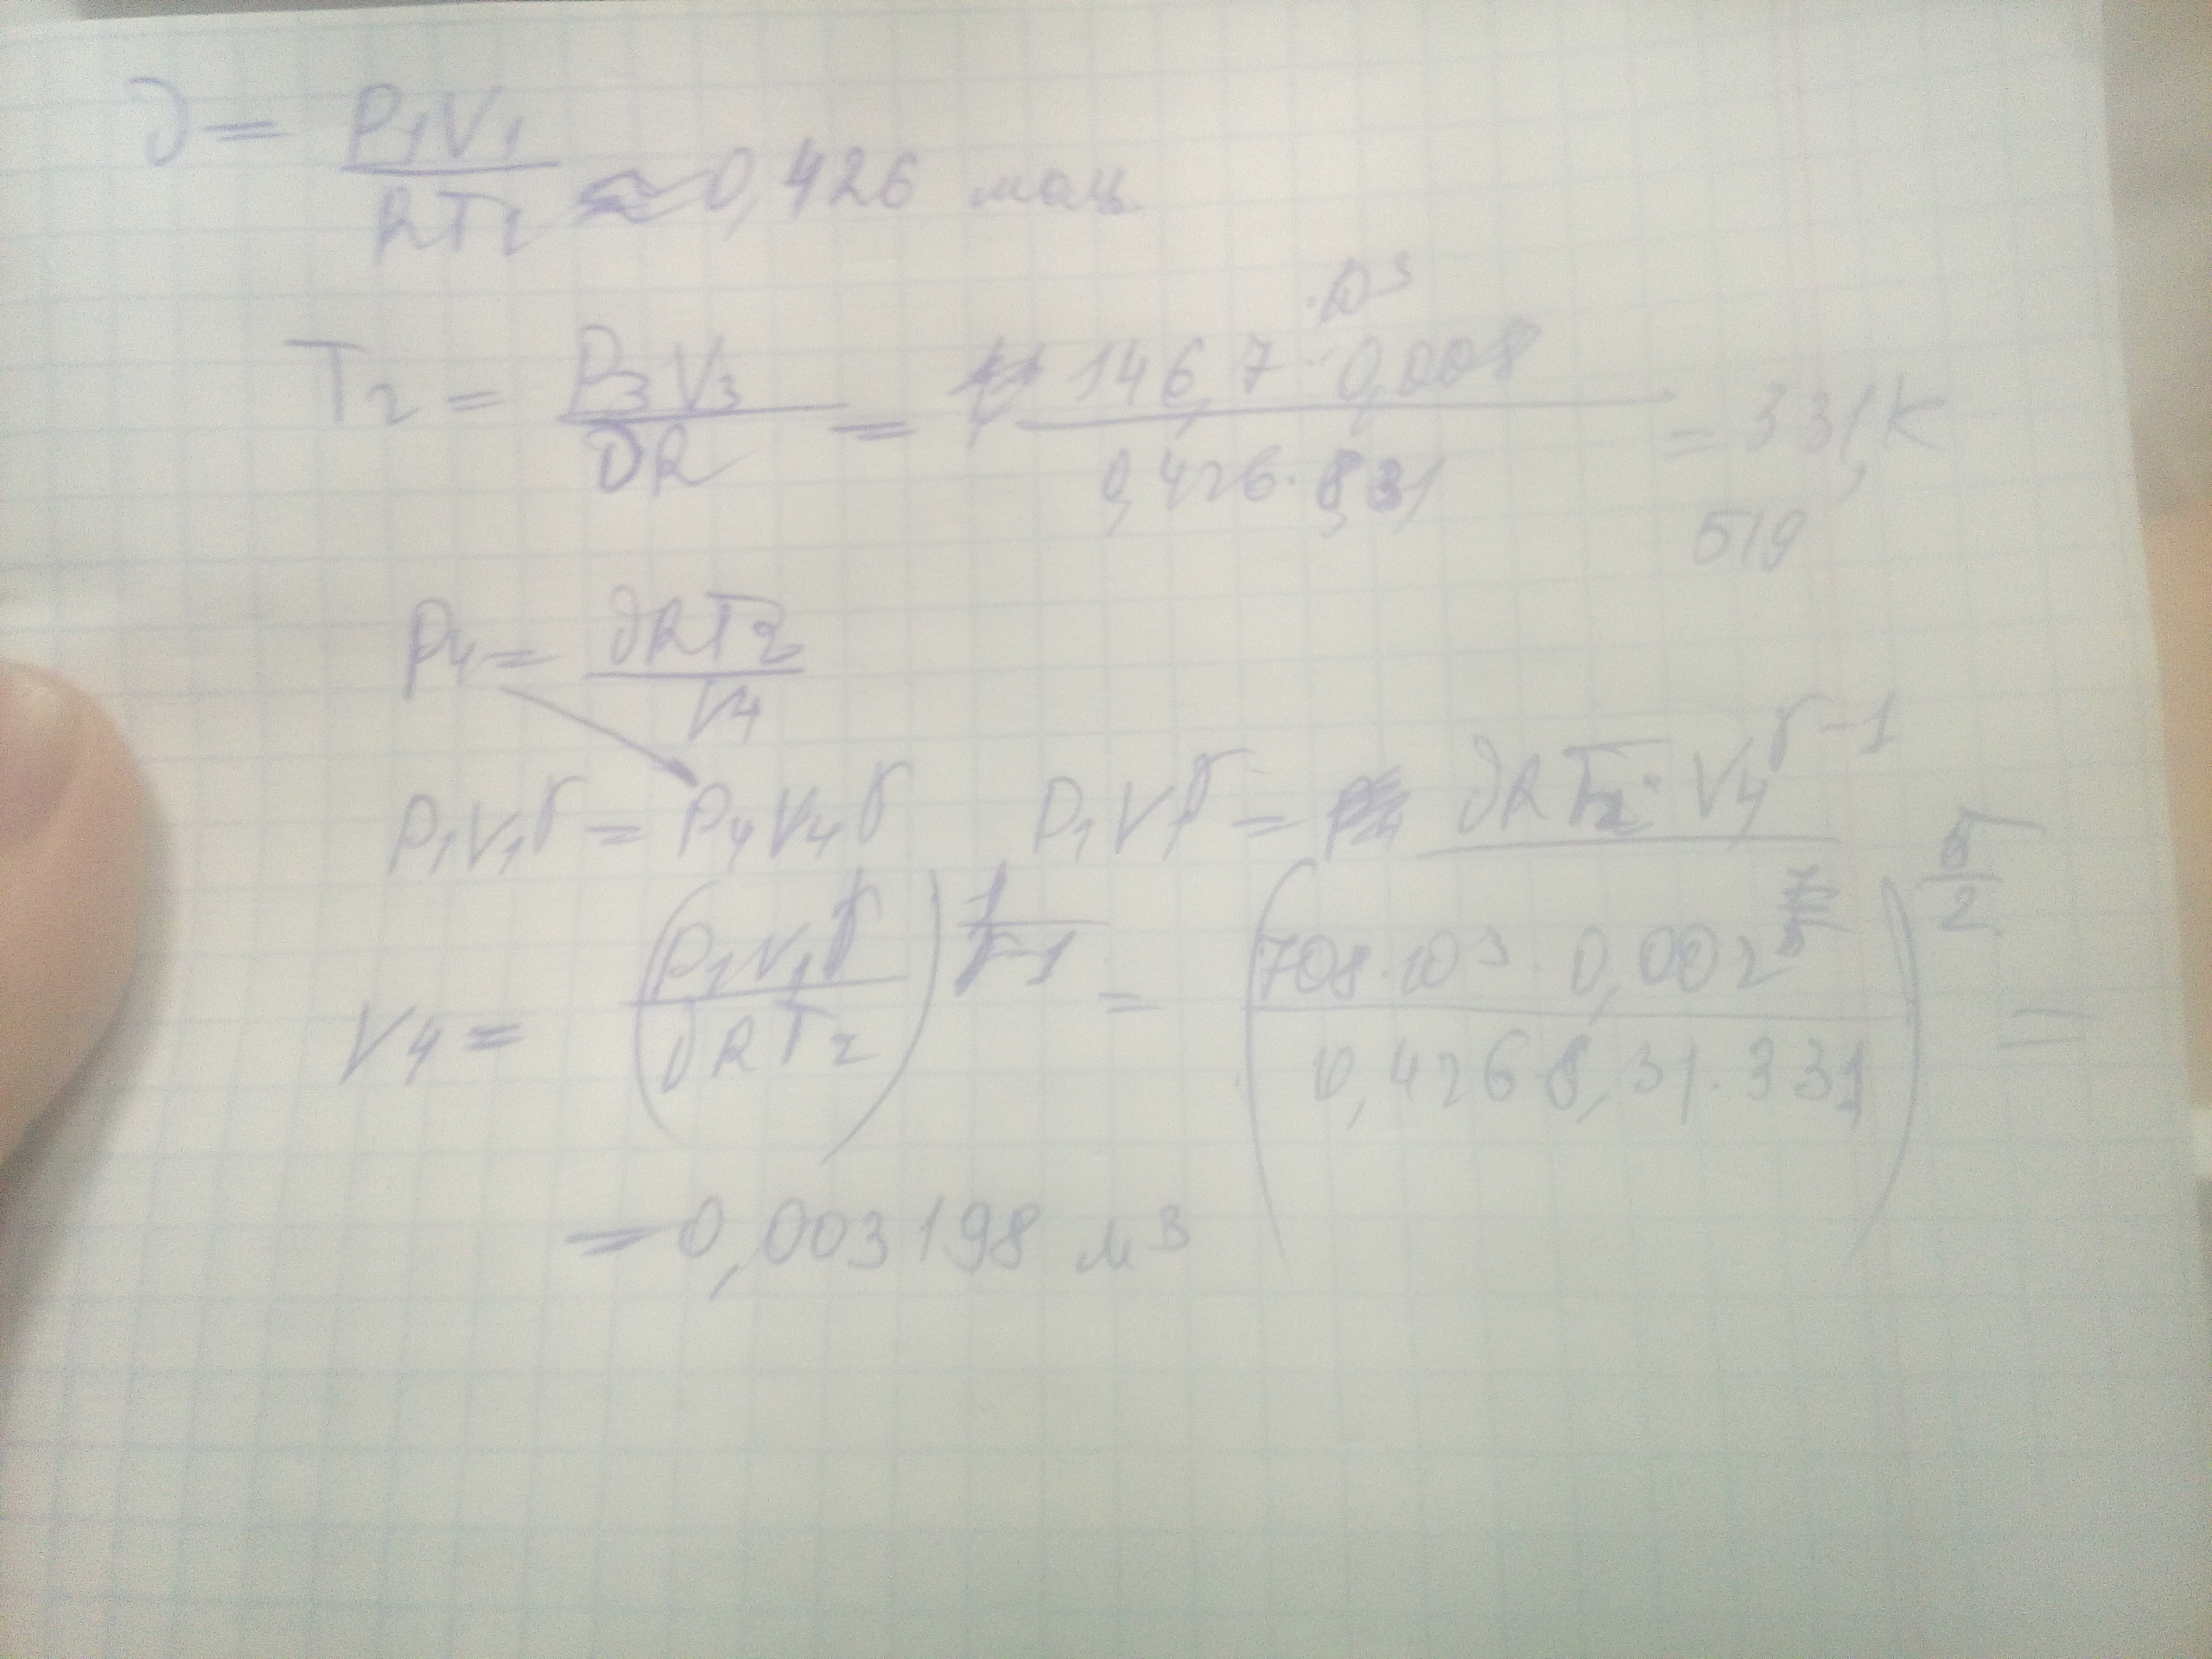 ν = P₁V₁ / RT₁ ≈ 0,426 моль
T₂ = P₃V₃ / νR = 146,7·10³·0,008 / 0,426·8,31 = 331,519 К
P₄ = νRT₂ / V₄
P₁V₁^γ = P₄V₄^γ P₁V₁^γ = νRT₂·V₄^(γ-1)
V₄ = (P₁V₁^γ / νRT₂)^(1/(γ-1)) = (708·10³ 0,002^(7/5) / 0,426·8,31·331)^(5/2) =
= 0,003198 м³